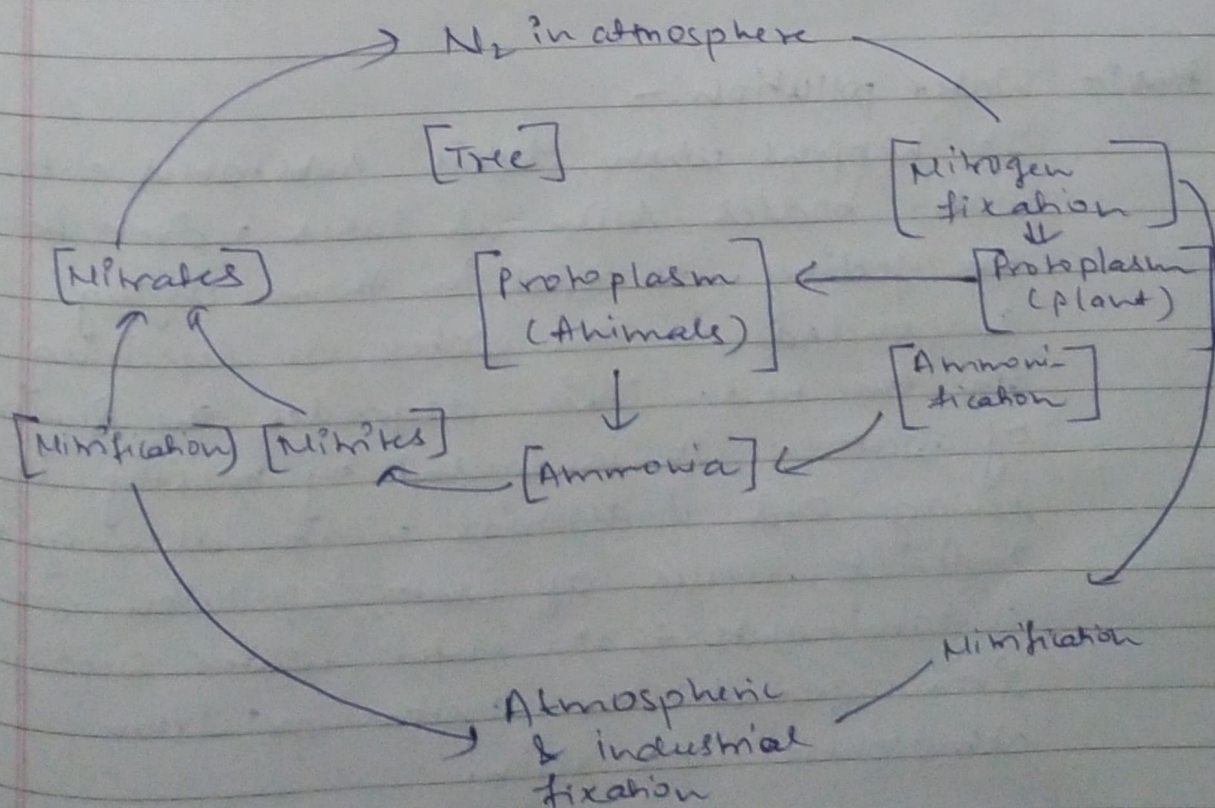 N₂ in atmosphere
[Tree]
[Nitrogen
fixation]
[Nitrates]
[Protoplasm
(Animals)]
[Protoplasm
(plant)]
[Ammoni-
fication]
[Nitrification] [Nitrites]
[Ammonia]
Nitrification
Atmospheric
& industrial
fixation